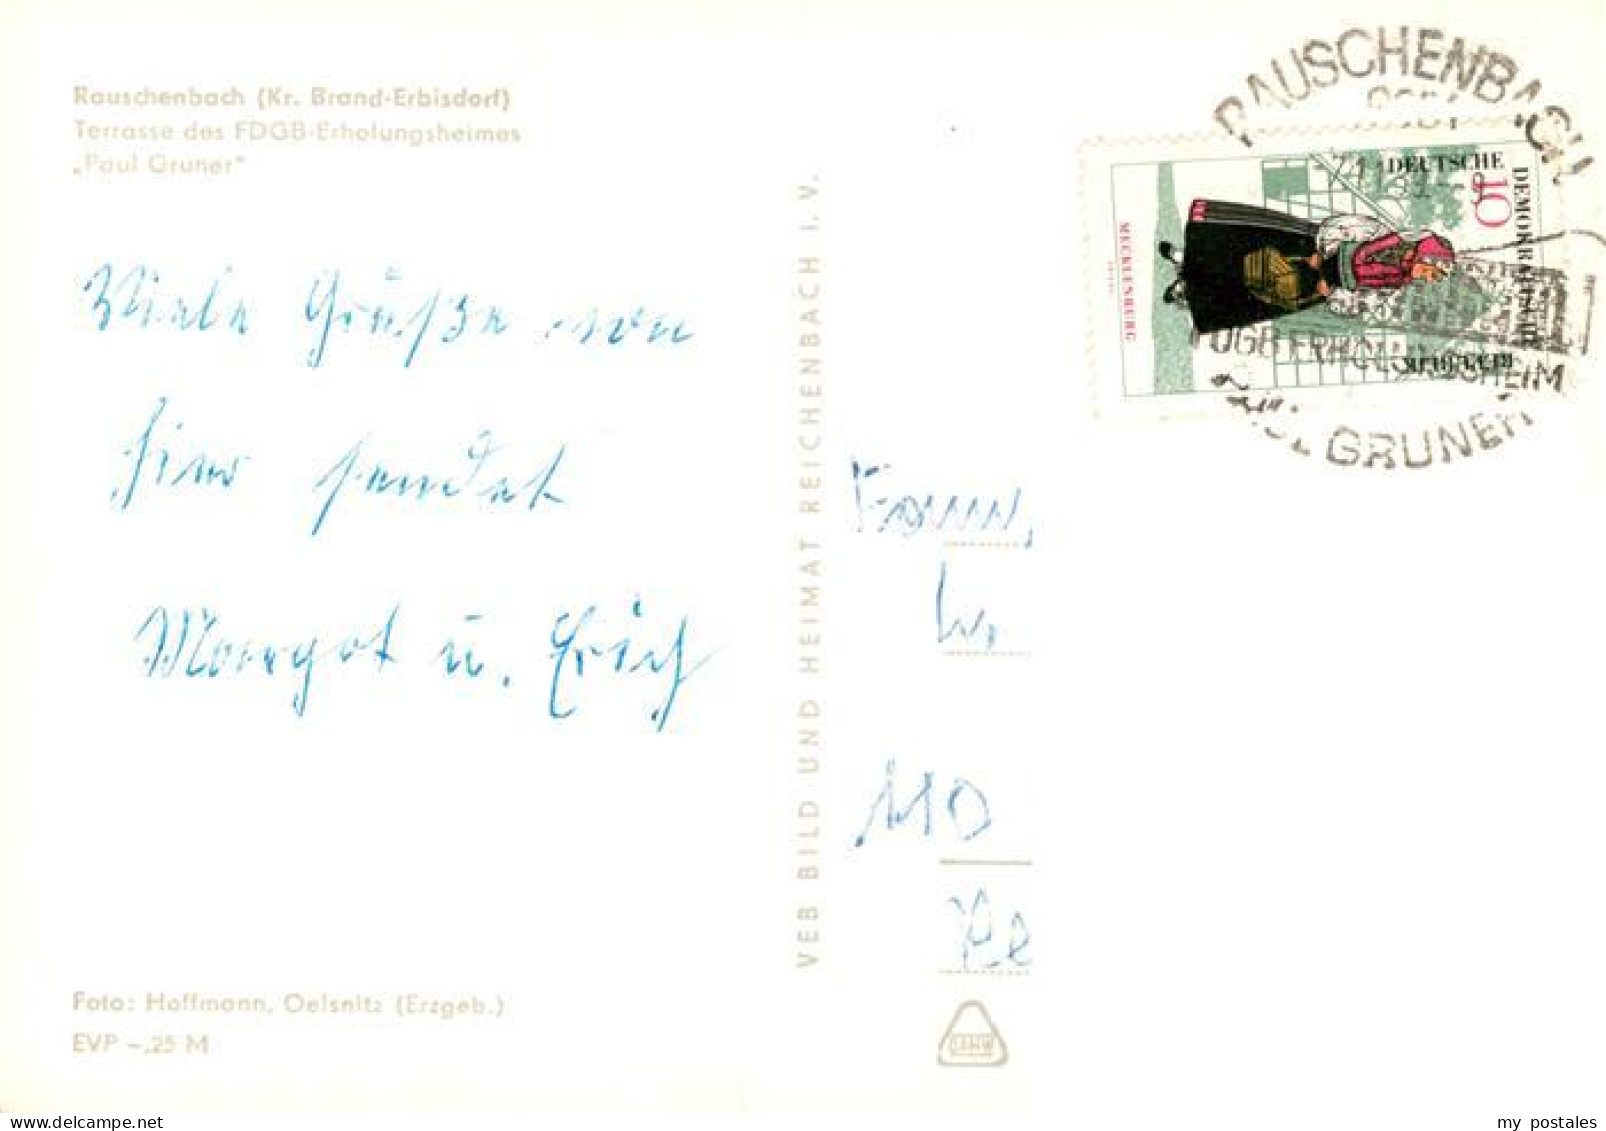 Rauschenbach (Kr. Brand-Erbisdorf)
Terrasse des FDGB-Erholungsheimes
„Paul Gruner"
Viele Grüße von
hier sendet
Margot u. Erich
Foto: Hoffmann, Oelsnitz (Erzgeb.)
EVP –,25 M
VEB BILD UND HEIMAT REICHENBACH I. V.
RAUSCHENBACH
DEUTSCHE
DEMOKRATISCHE
REPUBLIK
10
MECKLENBURG
FDGB ERHOLUNGSHEIM
GRUNER
Fam.
110
delcampe.net
my_postales